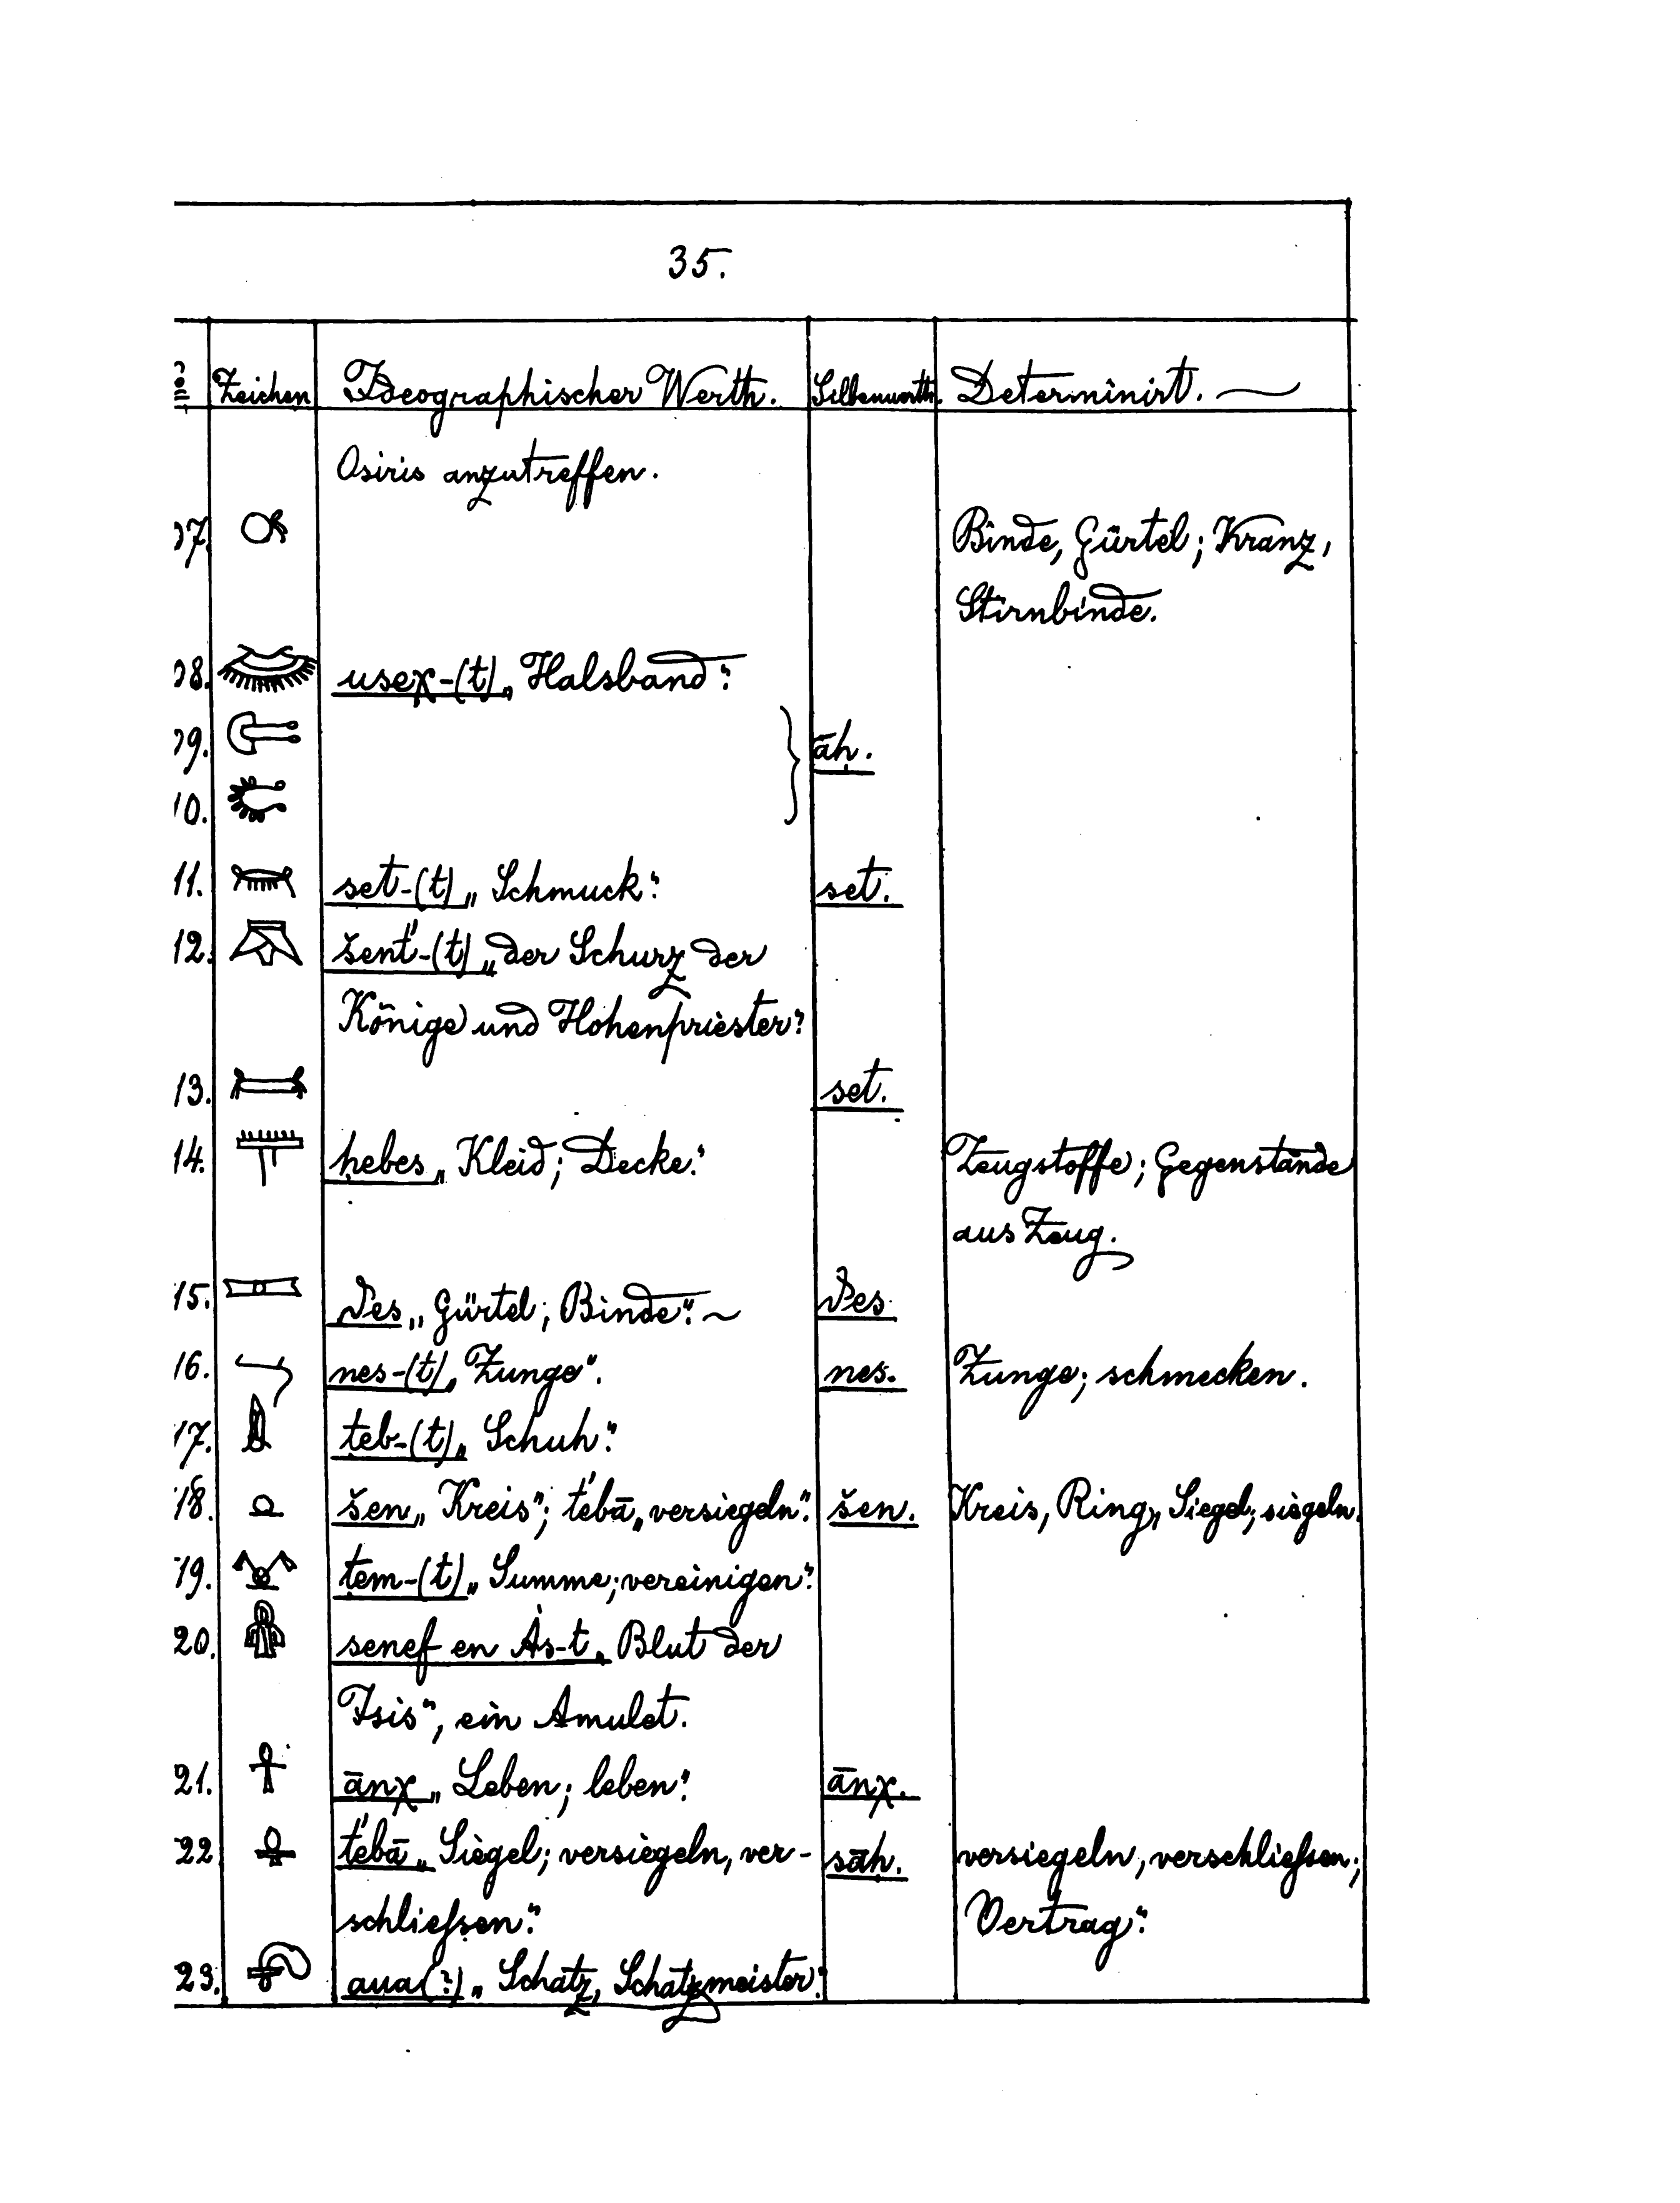 35.
Zeichen Ideographischer Werth. Silbenwerth. Determinirt.
Osiris anzutreffen.
07. Binde, Gürtel; Kranz,
Stirnbinde.
08. useχ-(t) „Halsband“.
09. āḥ.
10.
11. set-(t) „Schmuck“. set.
12. šent́-(t) „der Schurz der
Könige und Hohenpriester“
13. set.
14. ḥebes „Kleid; Decke.“ Zeugstoffe; Gegenstände
aus Zeug.
15. „Gürtel; Binde“.
16. nes-(t) „Zunge“. nes. Zunge; schmecken.
17. ṭeb-(t) „Schuh“.
18. šen „Kreis“; t́ebā „versiegeln“. šen. Kreis, Ring, Siegel; siegeln.
19. ṭem-(t) „Summe; vereinigen“.
20. senef en Ȧs-t „Blut der
Isis“, ein Amulet.
21. ānχ „Leben; leben“. ānχ.
22 t́ebā „Siegel; versiegeln, ver- sāḥ. versiegeln, verschließen;
schließen“. Vertrag“.
23. aua(?) „Schatz, Schatzmeister“.